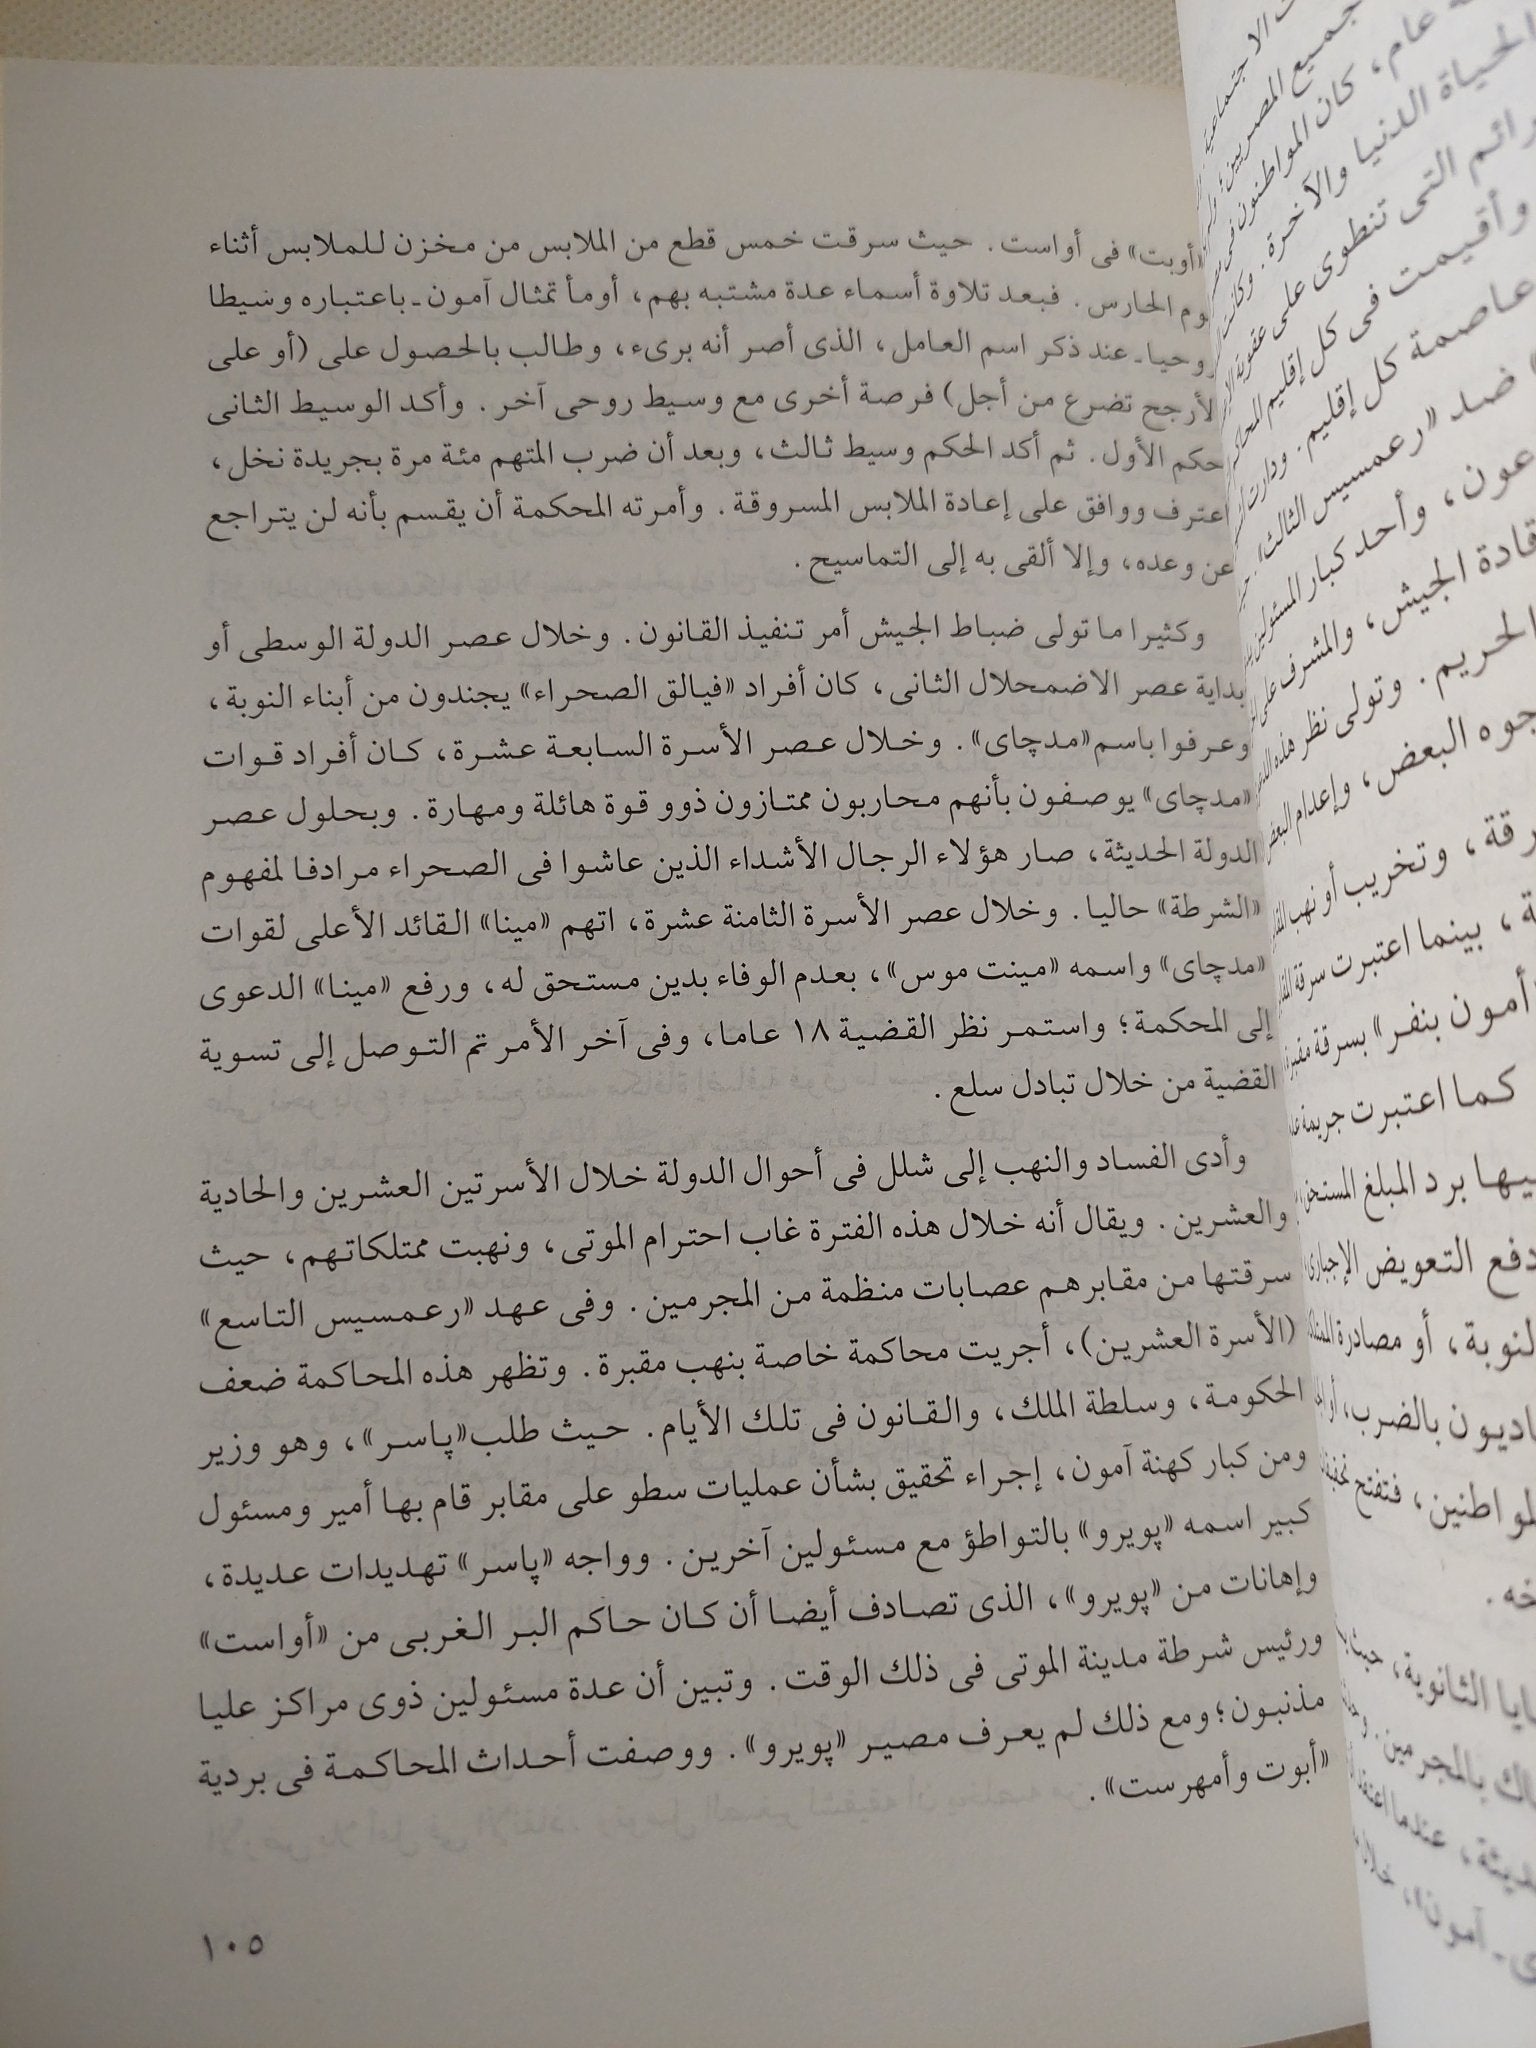 «أوبت» فى أواست. حيث سرقت خمس قطع من الملابس من مخزن للملابس أثناء
الحارس. فبعد تلاوة أسماء عدة مشتبه بهم، أومأ تمثال آمون ـ باعتباره وسيطا
روحيا ـ عند ذكر اسم العامل، الذى أصر أنه برىء، وطالب بالحصول على (أو على
الأرجح تضرع من أجل) فرصة أخرى مع وسيط روحى آخر. وأكد الوسيط الثانى
حكم الأول. ثم أكد الحكم وسيط ثالث، وبعد أن ضرب المتهم مئة مرة بجريدة نخل،
اعترف ووافق على إعادة الملابس المسروقة. وأمرته المحكمة أن يقسم بأنه لن يتراجع
عن وعده، وإلا ألقى به إلى التماسيح.
وكثيرا ما تولى ضباط الجيش أمر تنفيذ القانون. وخلال عصر الدولة الوسطى أو
بداية عصر الاضمحلال الثانى، كان أفراد «فيالق الصحراء» يجندون من أبناء النوبة،
وعرفوا باسم «مدچاى». وخلال عصر الأسرة السابعة عشرة، كان أفراد قوات
«مدچاى» يوصفون بأنهم محاربون ممتازون ذوو قوة هائلة ومهارة. وبحلول عصر
الدولة الحديثة، صار هؤلاء الرجال الأشداء الذين عاشوا فى الصحراء مرادفا لمفهوم
«الشرطة» حاليا. وخلال عصر الأسرة الثامنة عشرة، اتهم «مينا» القائد الأعلى لقوات
«مدچاى» واسمه «مينت موس»، بعدم الوفاء بدين مستحق له، ورفع «مينا» الدعوى
إلى المحكمة؛ واستمر نظر القضية ١٨ عاما، وفى آخر الأمر تم التوصل إلى تسوية
القضية من خلال تبادل سلع.
وأدى الفساد والنهب إلى شلل فى أحوال الدولة خلال الأسرتين العشرين والحادية
والعشرين. ويقال أنه خلال هذه الفترة غاب احترام الموتى، ونهبت ممتلكاتهم، حيث
سرقتها من مقابرهم عصابات منظمة من المجرمين. وفى عهد «رعمسيس التاسع»
(الأسرة العشرين)، أجريت محاكمة خاصة بنهب مقبرة. وتظهر هذه المحاكمة ضعف
الحكومة، وسلطة الملك، والقانون فى تلك الأيام. حيث طلب «پاسر»، وهو وزير
ومن كبار كهنة آمون، إجراء تحقيق بشأن عمليات سطو على مقابر قام بها أمير ومسئول
كبير اسمه «پويرو» بالتواطؤ مع مسئولين آخرين. وواجه «پاسر» تهديدات عديدة،
وإهانات من «پويرو»، الذى تصادف أيضا أن كان حاكم البر الغربى من «أواست»
ورئيس شرطة مدينة الموتى فى ذلك الوقت. وتبين أن عدة مسئولين ذوى مراكز عليا
مذنبون؛ ومع ذلك لم يعرف مصير «پويرو». ووصفت أحداث المحاكمة فى بردية
«أبوت وأمهرست».
١٠٥
الاجتماعية
جميع المصريين؛
عام، كان المواطنون فى
الحياة الدنيا والآخرة. وكانت
التى تنطوى على عقوبة
وأقيمت فى كل إقليم
عاصمة كل إقليم. ودارت
ضد «رعمسيس الثالث».
وأحد كبار المسئولين
قادة الجيش، والمشرف على
الحريم. وتولى نظر هذه
البعض، وإعدام البعض
وتخريب أو نهب
بينما اعتبرت سرقة
«أمون بنفر» بسرقة مقبرة
كما اعتبرت جريمة
برد المبلغ المستحق
دفع التعويض الإجبارى
النوبة، أو مصادرة
بالضرب، أو
فتفتح
الثانوية،
بالمجرمين.